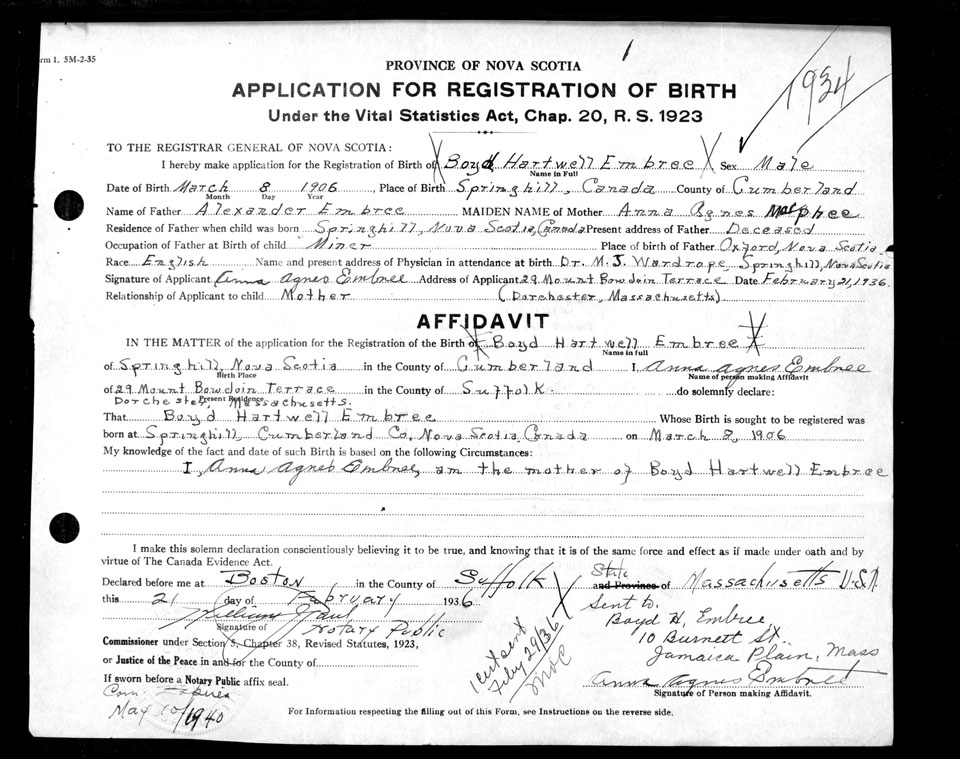 rm 1. 5M-2-35
1934
PROVINCE OF NOVA SCOTIA
APPLICATION FOR REGISTRATION OF BIRTH
Under the Vital Statistics Act, Chap. 20, R. S. 1923
TO THE REGISTRAR GENERAL OF NOVA SCOTIA:
I hereby make application for the Registration of Birth of Boyd Hartwell Embree Sex Male
Name in Full
Date of Birth March 8 1906, Place of Birth Springhill, Canada County of Cumberland
Month Day Year
Name of Father Alexander Embree MAIDEN NAME of Mother Anna Agnes MacPhee
Residence of Father when child was born Springhill, Nova Scotia, Canada Present address of Father Deceased
Occupation of Father at Birth of child Miner Place of birth of Father Oxford, Nova Scotia
Race English Name and present address of Physician in attendance at birth Dr. M. J. Wardrope, Springhill, Nova Scotia
Signature of Applicant Anna Agnes Embree Address of Applicant 29 Mount Bowdoin Terrace Date February 21, 1936.
Relationship of Applicant to child Mother (Dorchester, Massachusetts)
AFFIDAVIT
IN THE MATTER of the application for the Registration of the Birth of Boyd Hartwell Embree
Name in full
of Springhill, Nova Scotia in the County of Cumberland I, Anna Agnes Embree
Birth Place Name of person making Affidavit
of 29 Mount Bowdoin Terrace in the County of Suffolk do solemnly declare:
Present Residence
Dorchester, Massachusetts.
That Boyd Hartwell Embree Whose Birth is sought to be registered was
born at Springhill, Cumberland Co., Nova Scotia, Canada on March 8, 1906
My knowledge of the fact and date of such Birth is based on the following Circumstances:
I, Anna Agnes Embree, am the mother of Boyd Hartwell Embree
I make this solemn declaration conscientiously believing it to be true, and knowing that it is of the same force and effect as if made under oath and by
virtue of The Canada Evidence Act.
Declared before me at Boston in the County of Suffolk State and Province of Massachusetts U.S.A.
this 21 day of February 1936
William Paul
Signature of Notary Public
Commissioner under Section 5, Chapter 38, Revised Statutes, 1923,
or Justice of the Peace in and for the County of
If sworn before a Notary Public affix seal.
Com. Expires
May 10/1940
Sent to
Boyd H. Embree,
10 Burnett St.
Jamaica Plain, Mass
Feby 29/36
Anna Agnes Embree
Signature of Person making Affidavit.
For Information respecting the filling out of this Form, see Instructions on the reverse side.